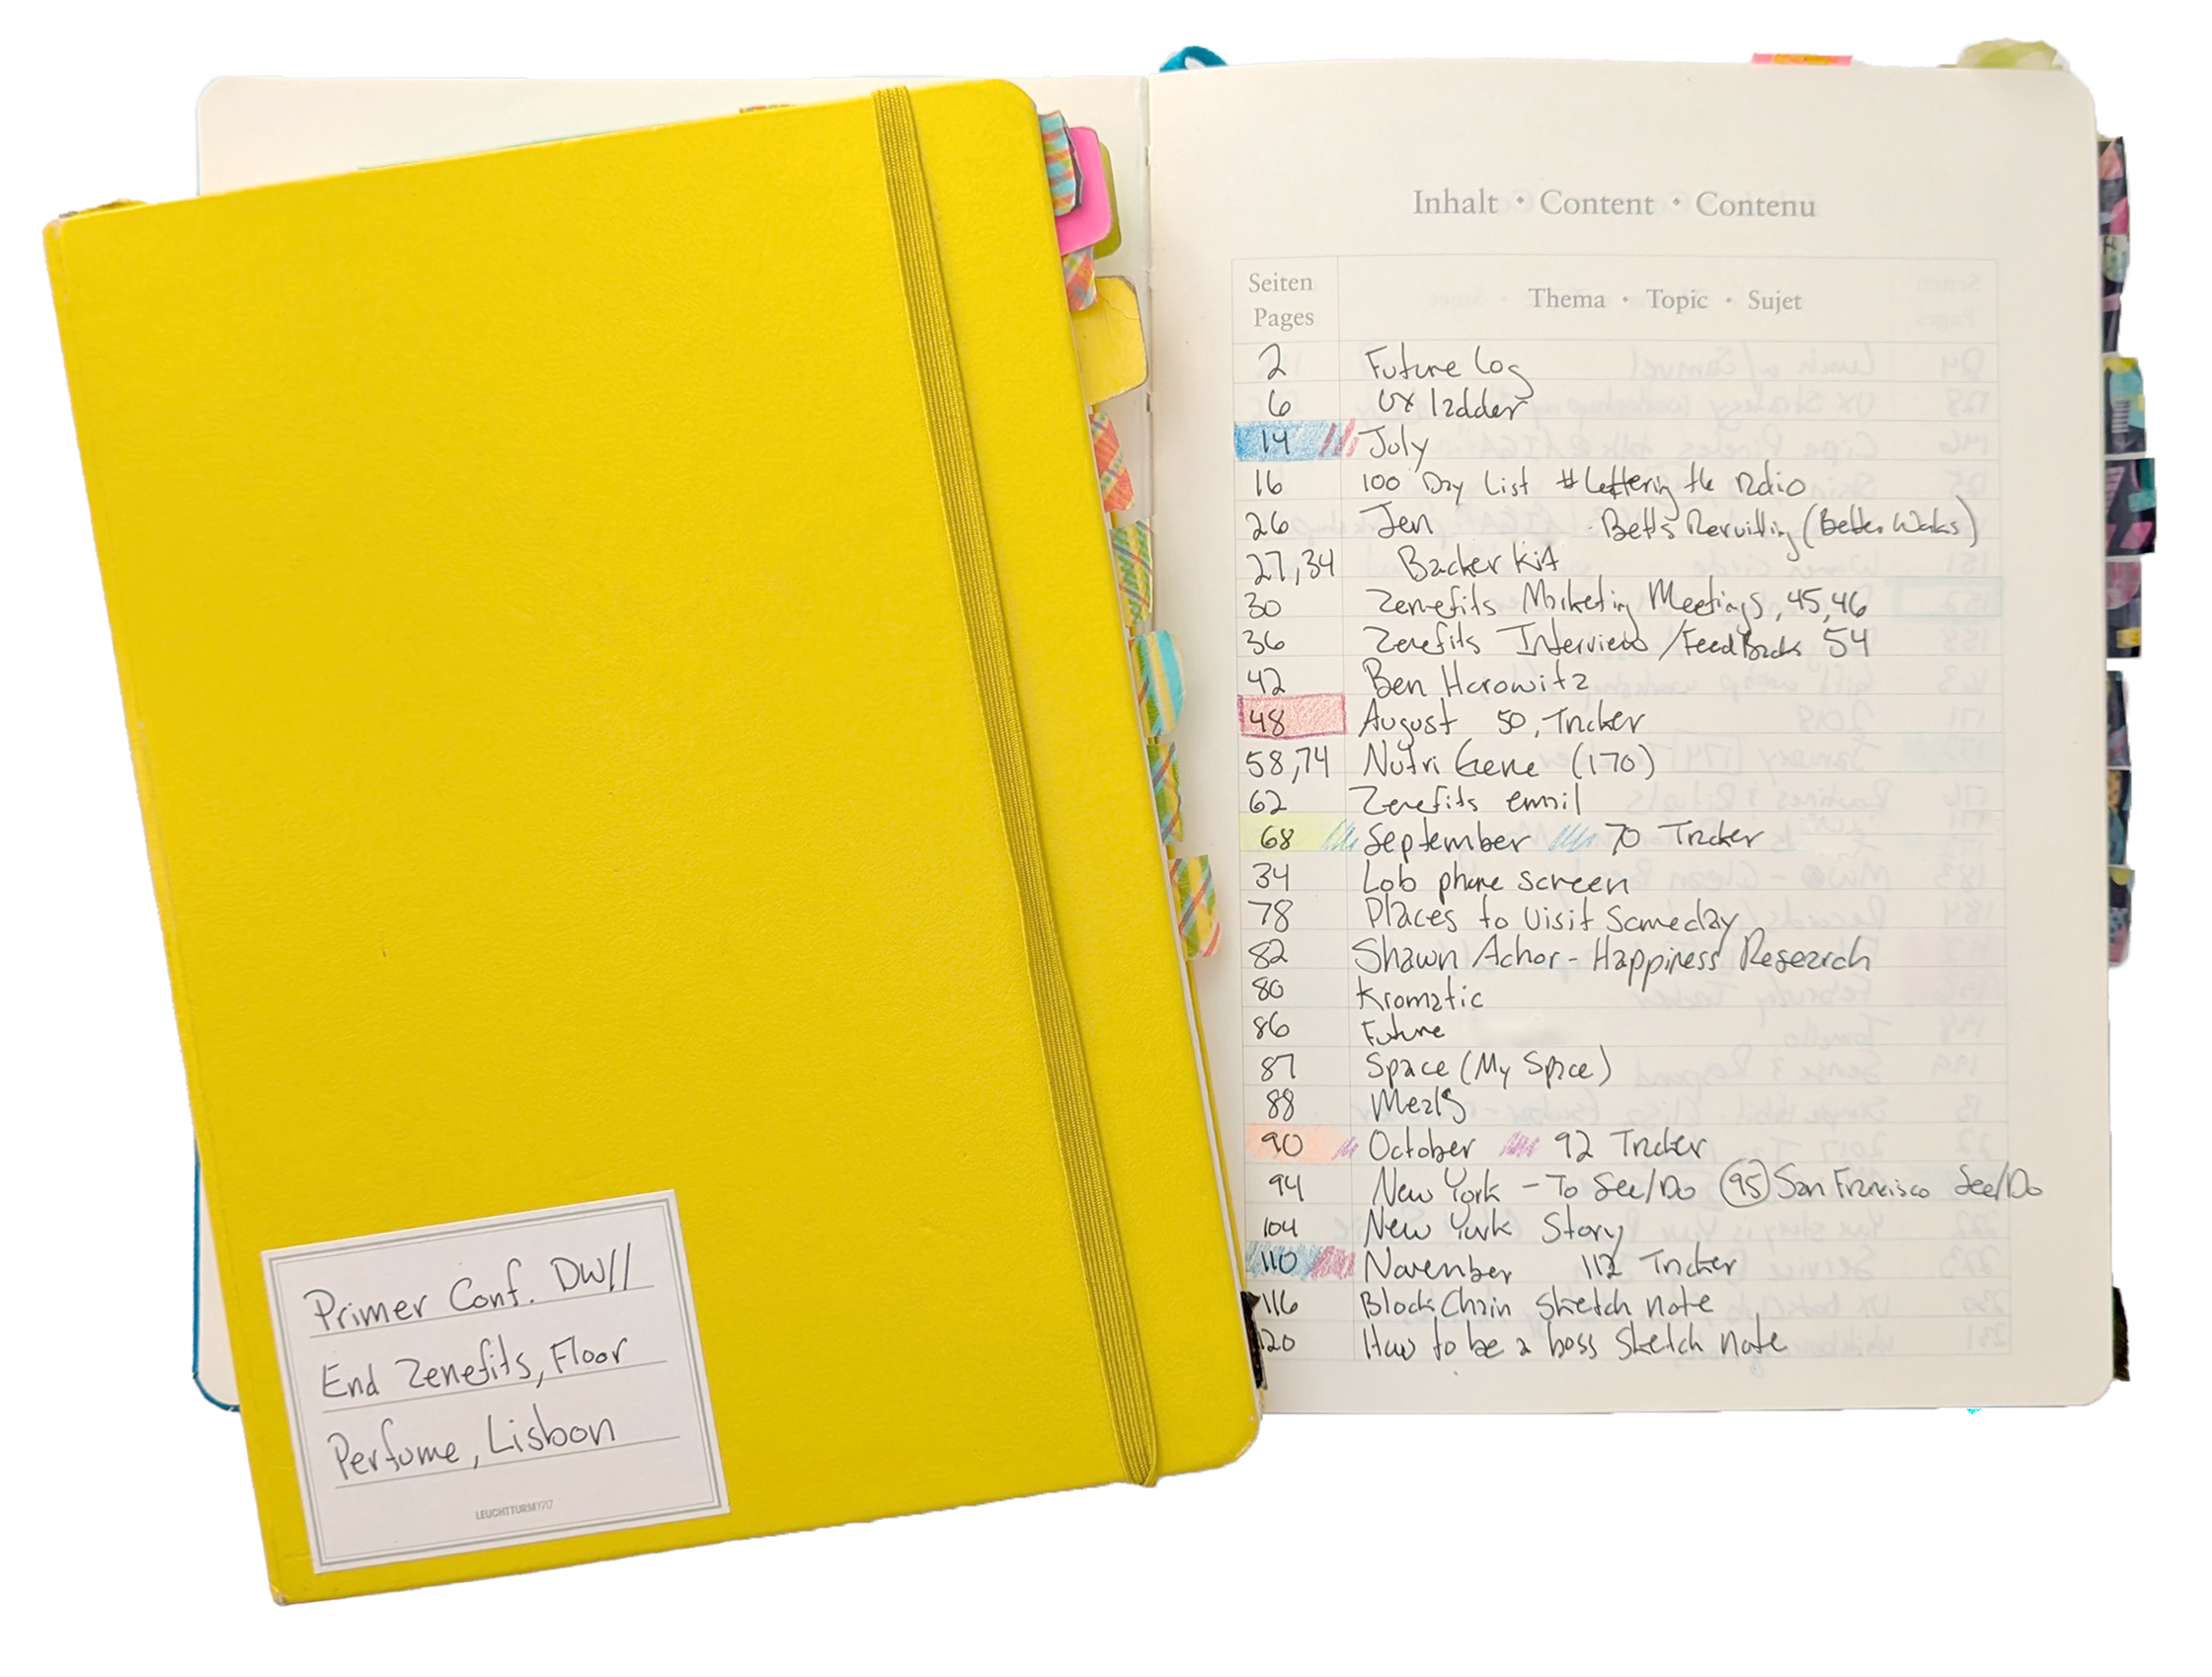 Primer Conf. DW//
End Zenefits, Floor
Perfume, Lisbon
LEUCHTTURM1917
Inhalt • Content • Contenu
Seiten
Pages
Thema • Topic • Sujet
2 Future Log
6 UX ladder
14 July
16 100 Day List #Lettering the radio
26 Jen - Betts Recruiting (Better Works)
27,34 Backer Kit
30 Zenefits Marketing Meetings, 45,46
36 Zenefits Interviews /FeedBack 54
42 Ben Horowitz
48 August 50, Tracker
58,74 Nutri Gene (170)
62 Zenefits email
68 September 70 Tracker
34 Lob phone screen
78 Places to Visit Someday
82 Shawn Achor - Happiness Research
80 Kromatic
86 Future
87 Space (My Space)
88 Meals
90 October 92 Tracker
94 New York - To See/Do (95) San Francisco See/Do
104 New York Story
110 November 112 Tracker
116 BlockChain Sketch note
120 How to be a boss Sketch note